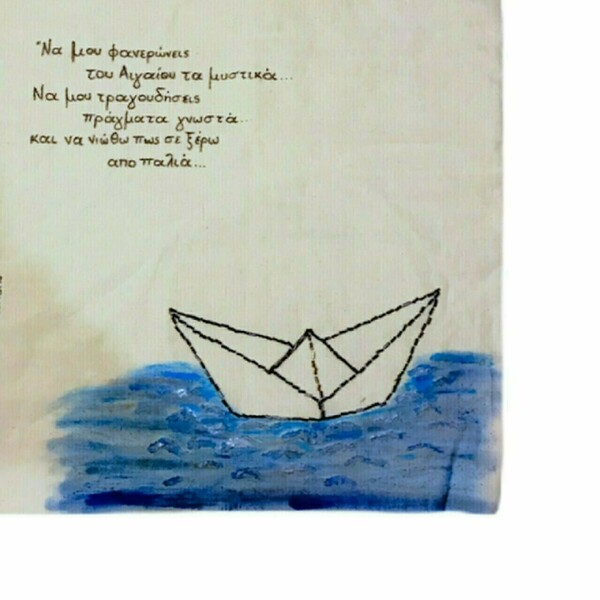 "Να μου φανερώνεις
του Αιγαίου τα μυστικά...
Να μου τραγουδήσεις
πράγματα γνωστά..
και να νιώθω πως σε ξέρω
απο παλιά...